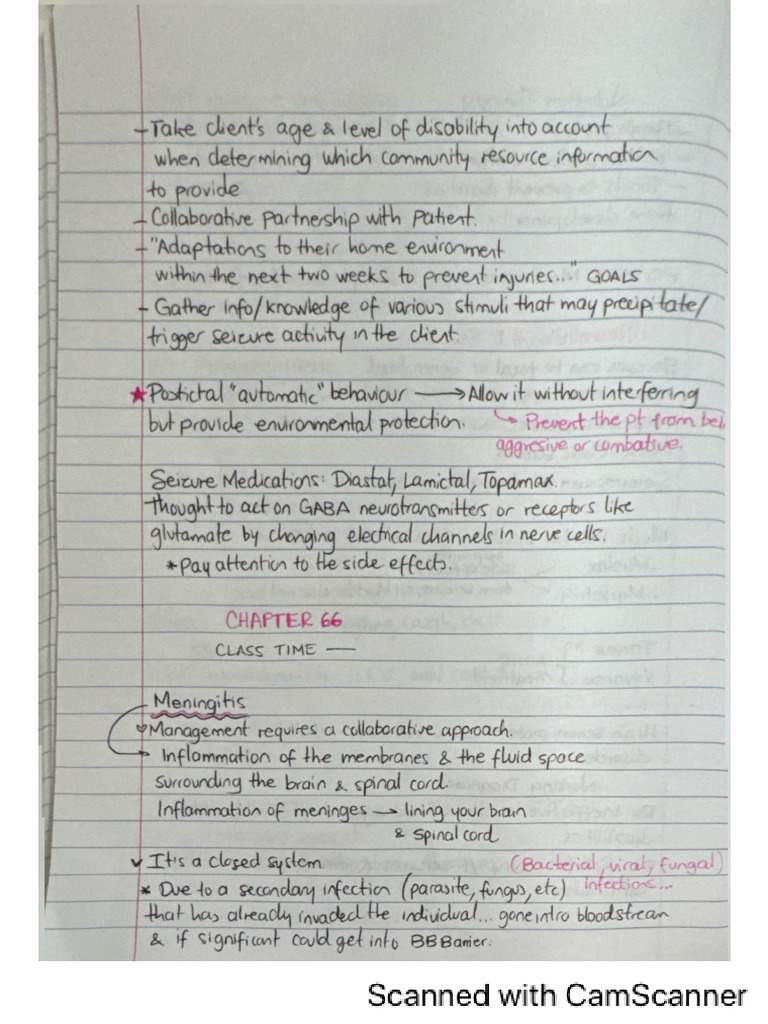 - Take client's age & level of disability into account
when determining which community resource information
to provide
- Collaborative partnership with patient.
- "Adaptations to their home environment
within the next two weeks to prevent injuries..." GOALS
- Gather info/knowledge of various stimuli that may precipitate/
trigger seizure activity in the client.
★ Postictal "automatic" behaviour → Allow it without interferring
but provide environmental protection. ↳ Prevent the pt from bei
aggresive or combative.
Seizure Medications: Diastat, Lamictal, Topamax.
Thought to act on GABA neurotransmitters or receptors like
glutamate by changing electrical channels in nerve cells.
* Pay attention to the side effects.
CHAPTER 66
CLASS TIME —
Meningitis
Management requires a collaborative approach.
Inflammation of the membranes & the fluid space
surrounding the brain & spinal cord.
Inflammation of meninges → lining your brain
& spinal cord
✓ It's a closed system. (Bacterial, viral, fungal)
* Due to a secondary infection (parasite, fungus, etc) Infections...
that has already invaded the individual... gone intro bloodstream
& if significant could get into BBBarrier.
Scanned with CamScanner